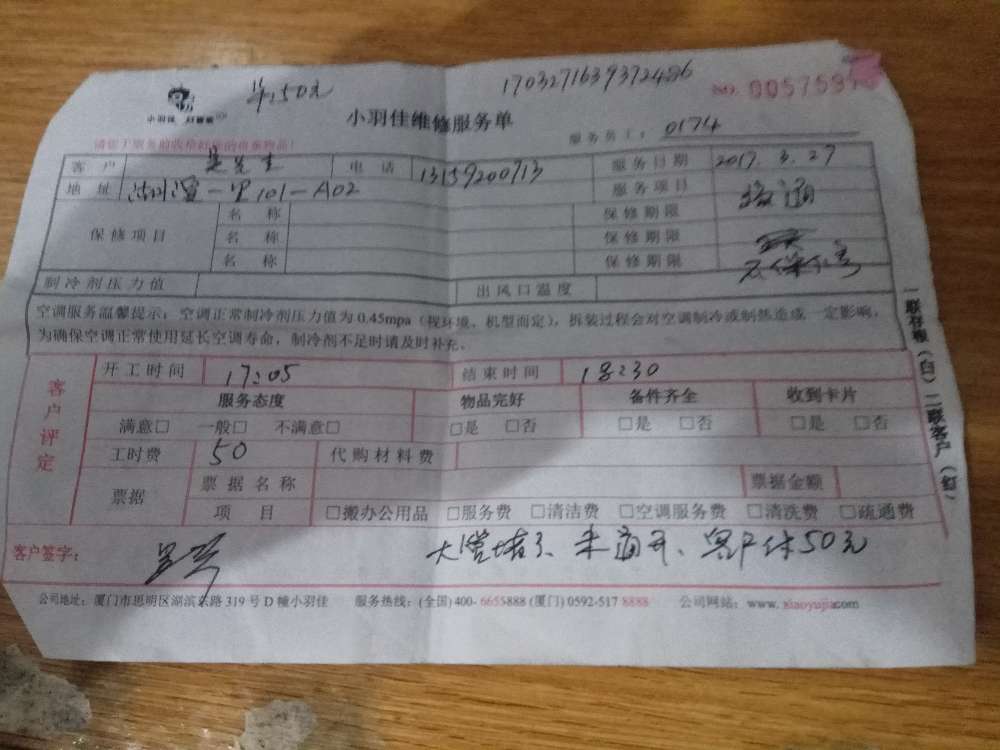 1703271639372486
小羽佳
NO. 005759
50元
小羽佳维修服务单
服务员工： 0174
客户 先生 电话 13159200713 服务日期 2017. 3. 27
地址 一里101-A02 服务项目 疏通
保修项目 名称 保修期限
名称 保修期限
名称 保修期限
制冷剂压力值 出风口温度
空调服务温馨提示：空调正常制冷剂压力值为 0.45mpa（视环境、机型而定），拆装过程会对空调制冷或制热造成一定影响，
为确保空调正常使用延长空调寿命，制冷剂不足时请及时补充。
一联存根（白）二联客户（红）
客户评定
开工时间 17:05 结束时间 18:30
服务态度 物品完好 备件齐全 收到卡片
满意□ 一般□ 不满意□ □是 □否 □是 □否 □是 □否
工时费 50 代购材料费
票据 票据名称 票据金额
项目 □搬办公用品 □服务费 □清洁费 □空调服务费 □清洗费 □疏通费
客户签字：
大管堵了、未通开、客户给50元
公司地址：厦门市思明区湖滨东路 319 号 D 幢小羽佳 服务热线：(全国) 400- 6655888 (厦门) 0592-517 8888 公司网站：www. xiaoyujia.com